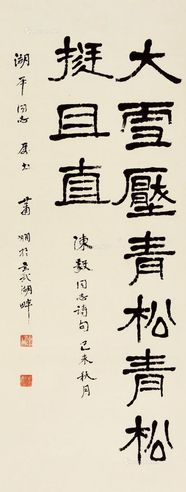 大雪壓青松青松
挺且直
陳毅同志詩句 己未秋月
湖平同志 屬書 蕭嫻於玄武湖畔